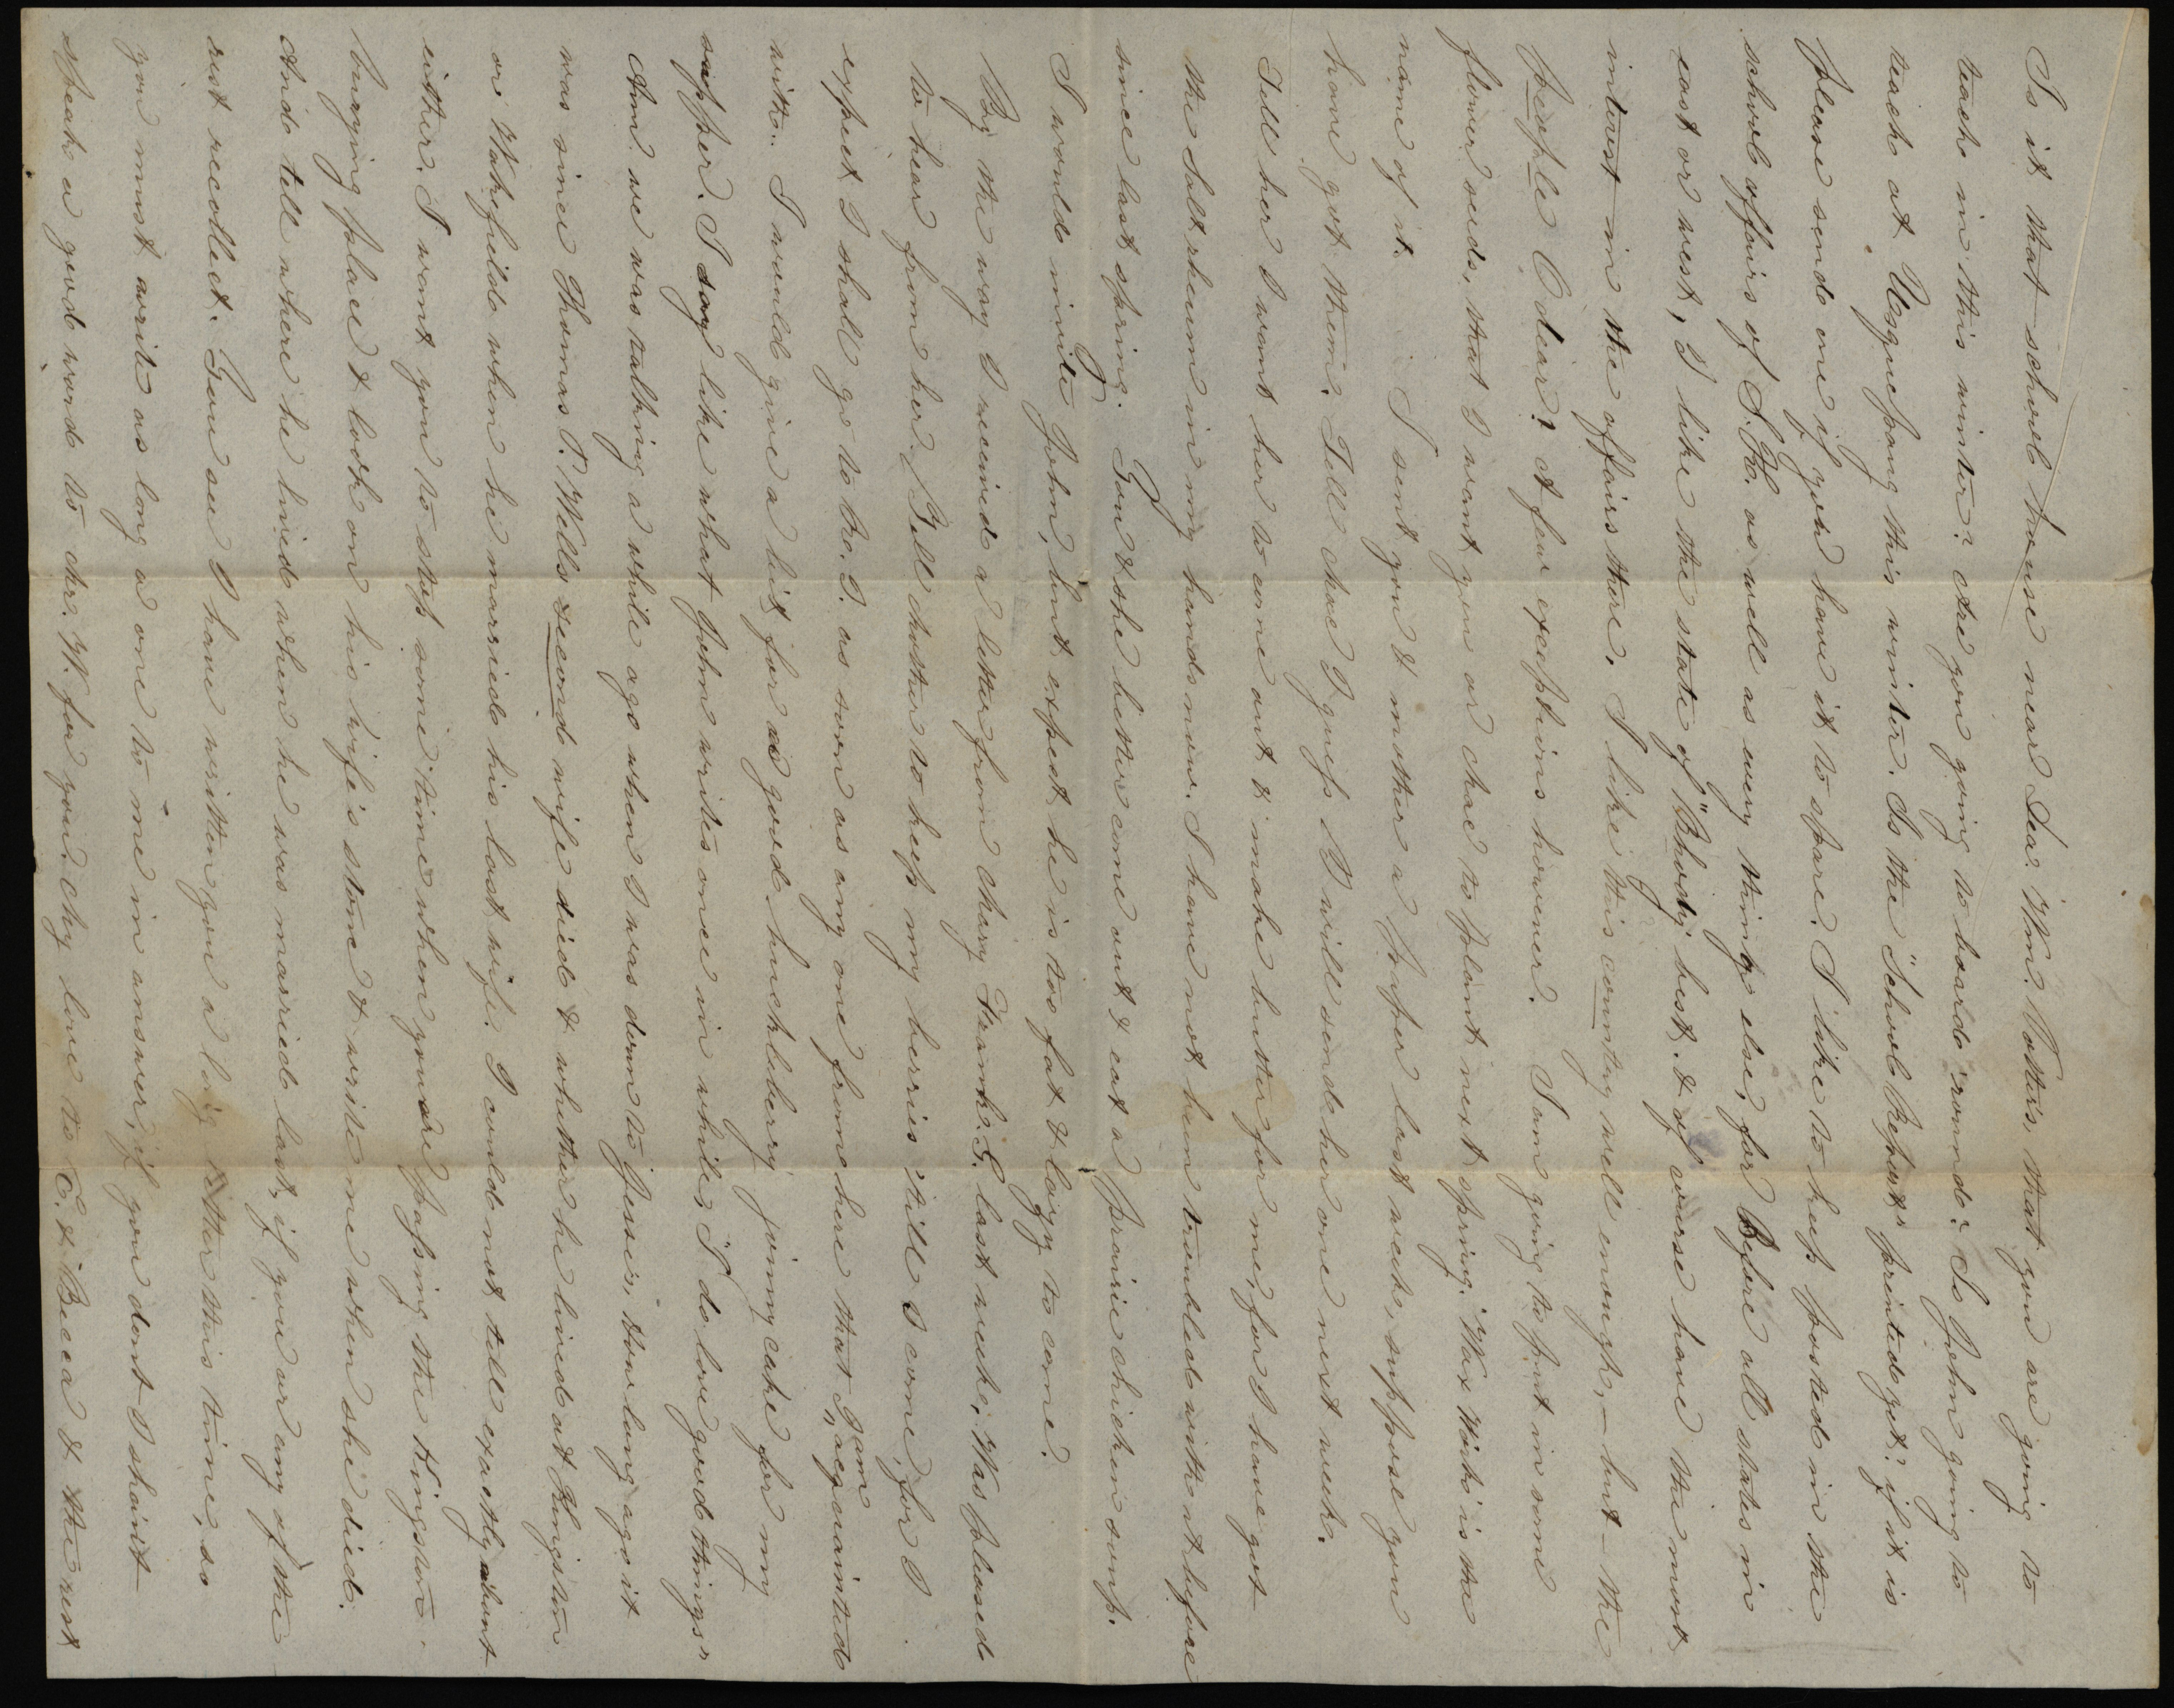 Is it that school house near Dea. Wm. Potter's, that you are going to
teach in this winter? Are you going to board 'round? Is John going to
teach at Usquepaug this winter. Is the "School Report" printed yet? if it is
please send me one if you have it to spare. I like to keep posted in the
school affairs of S.K. as well as every thing else, for Before all states in
east or west, I like the state of "Rhody" best. & of course have the most
interest in the affairs there. I like this country well enough, — but — the
people O dear! A few exceptions however. I am going to put in some
flower seeds, that I want you or Mae to plant next spring. Wax Work is the
name of it. I sent you & mother a paper last week, suppose you
have got them. Tell Mae I guess I will send her one next week.
Tell her I want her to come out & make butter for me, for I have got
the Salt rheum in my hands now. I have not been troubled with it before
since last spring. You & she better come out & eat a prairie chicken soup.
I would invite John, but expect he is too fat & lazy to come.
By the way I received a letter from Mary Frank. G. last week; Was pleased
to hear from her. Tell mother to keep my berries 'till I come, for I
expect I shall go to Ro. I. as soon as any one from here that I am acquainted
with. I would give a bit for a good huckleberry jonny cake for my
supper. I say like what John writes once in while, "I do love good things"
Am we was talking a while ago when I was down to Jesse's, how long ago it
was since Thomas P. Wells second wife died & whether he lived at Kingston
or Wakefield when he married his last wife. I could not tell exactly about
either. I want you to stop some time when you are passing the Kingston
burying place & look on his wife's stone & write me when she died.
And tell where he lived when he was married last, if you or any of the
rest recollect. You see I have written you a long letter this time, so
you must write as long a one to me in answer, if you dont I shant
speak a good word to Mr. W. for you. My love to C. & Becca & the rest